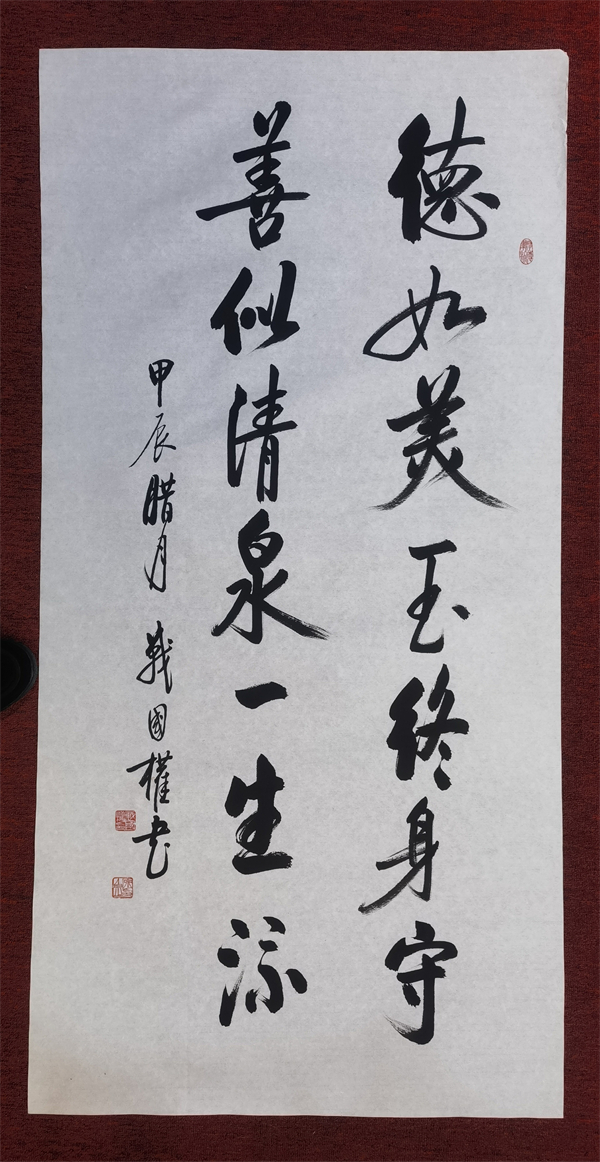 德如美玉终身守
善似清泉一生流
甲辰腊月 戰國權书